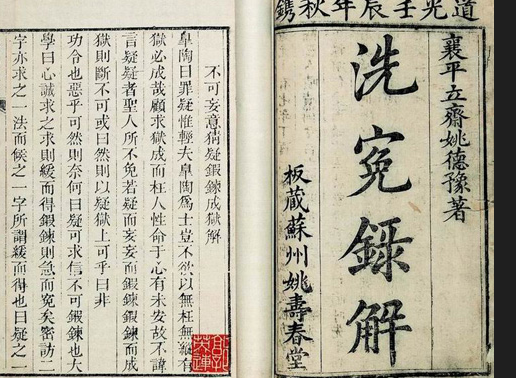 道光壬辰年秋鐫
襄平立齋姚德豫著
洗冤錄解
板藏蘇州姚壽春堂
不可妄意猜疑鍛鍊成獄解
臯陶曰罪疑惟輕夫臯陶爲士豈不欲以無枉無縱者
獄必成哉顧求獄成而枉人性命于心有未安故不諱
言疑疑者聖人所不免若疑而妄妄而鍛鍊鍛鍊而成
獄則斷不可或曰然則以疑獄上可乎曰非
功令也惡乎可然則奈何曰疑可求信不可鍛鍊也大
學曰心誠求之求則緩而得鍛鍊則急而寃矣密訪二
字亦求之一法而候之一字所謂緩而得也曰疑之一